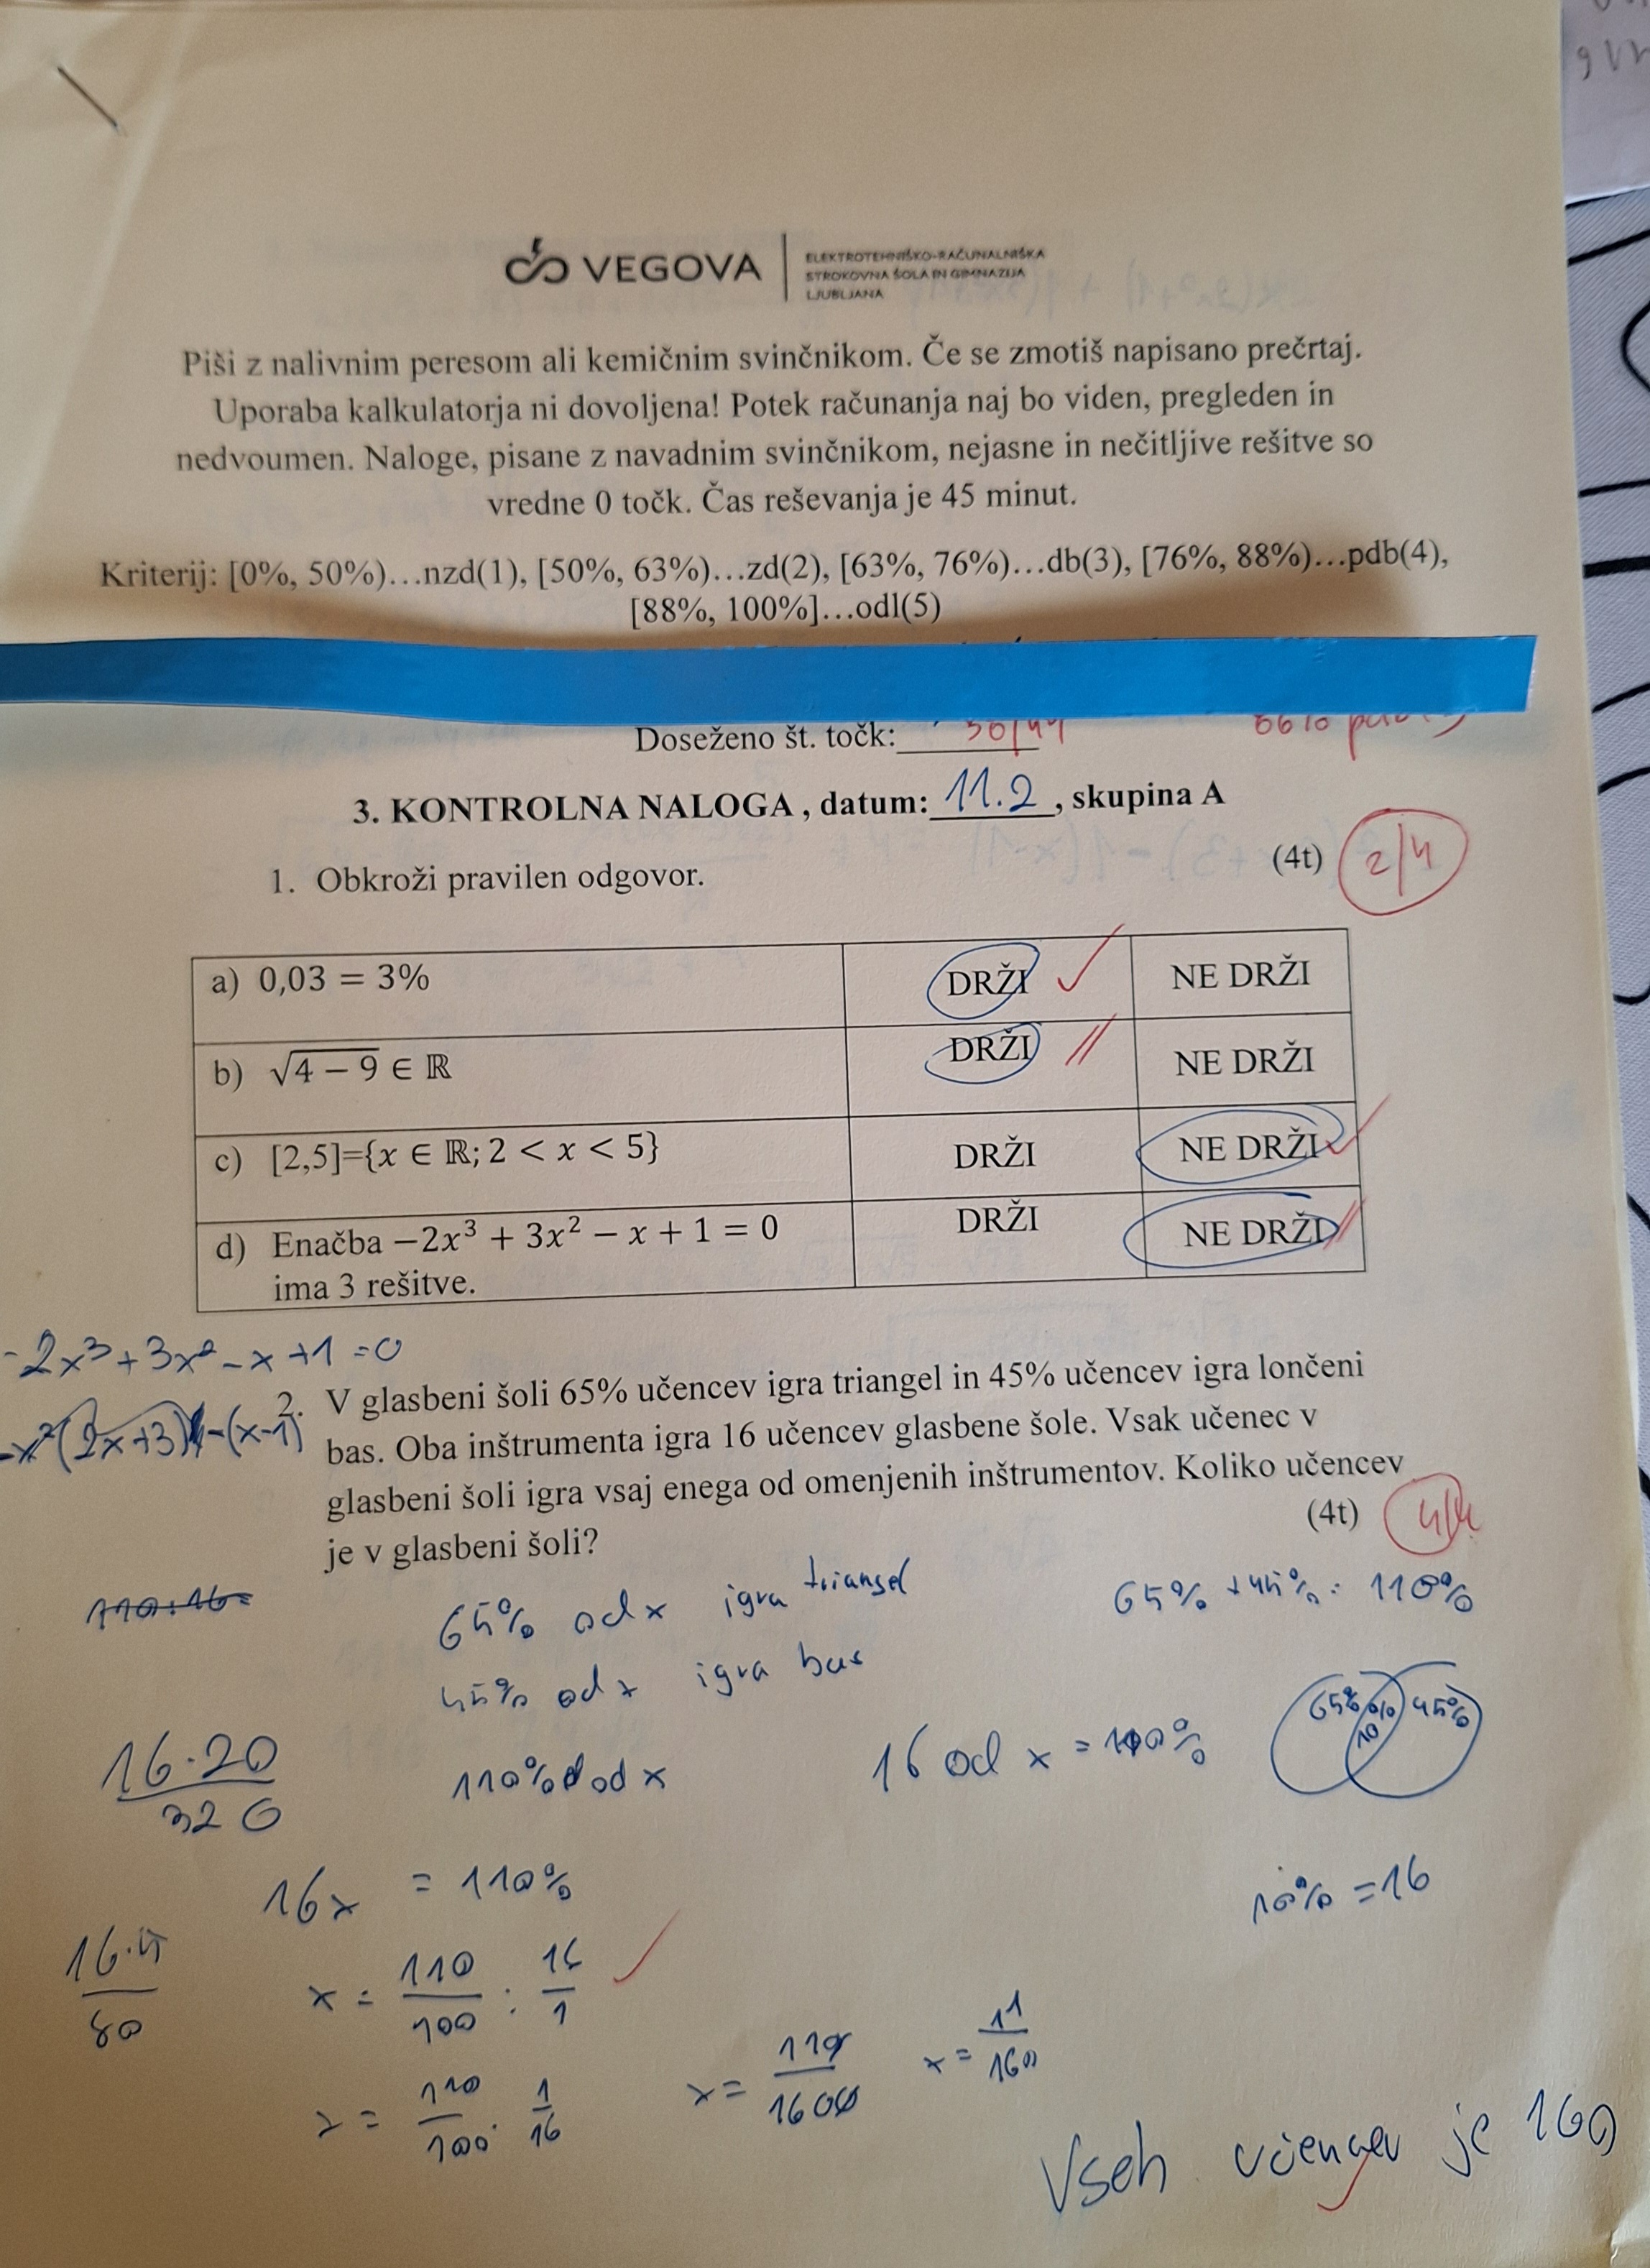 VEGOVA
ELEKTROTEHNIŠKO-RAČUNALNIŠKA
STROKOVNA ŠOLA IN GIMNAZIJA
LJUBLJANA
Piši z nalivnim peresom ali kemičnim svinčnikom. Če se zmotiš napisano prečrtaj.
Uporaba kalkulatorja ni dovoljena! Potek računanja naj bo viden, pregleden in
nedvoumen. Naloge, pisane z navadnim svinčnikom, nejasne in nečitljive rešitve so
vredne 0 točk. Čas reševanja je 45 minut.
Kriterij: [0%, 50%)…nzd(1), [50%, 63%)…zd(2), [63%, 76%)…db(3), [76%, 88%)…pdb(4),
[88%, 100%]…odl(5)
Doseženo št. točk:
3. KONTROLNA NALOGA , datum: 11.2 , skupina A
1. Obkroži pravilen odgovor. (4t) 2/4
a) 0,03 = 3% DRŽI NE DRŽI
b) √4 − 9 ∈ ℝ DRŽI NE DRŽI
c) [2,5]={x ∈ ℝ; 2 < x < 5} DRŽI NE DRŽI
d) Enačba −2x³ + 3x² − x + 1 = 0 DRŽI NE DRŽI
ima 3 rešitve.
-2x³+3x²-x+1=0
-x²(2x+3)-(x-1)
2. V glasbeni šoli 65% učencev igra triangel in 45% učencev igra lončeni
bas. Oba inštrumenta igra 16 učencev glasbene šole. Vsak učenec v
glasbeni šoli igra vsaj enega od omenjenih inštrumentov. Koliko učencev
je v glasbeni šoli? (4t) 4/4
110:16=
65% od x igra triangel 65% +45% = 110%
45% od x igra bas
65% 10% 45%
16·20 110% od x 16 od x = 100%
320
16x = 110% 10% =16
16·5
80
x = 110/100 : 16/1
x = 110/100 · 1/16 x= 110/1600 x= 11/160
Vseh učencev je 160